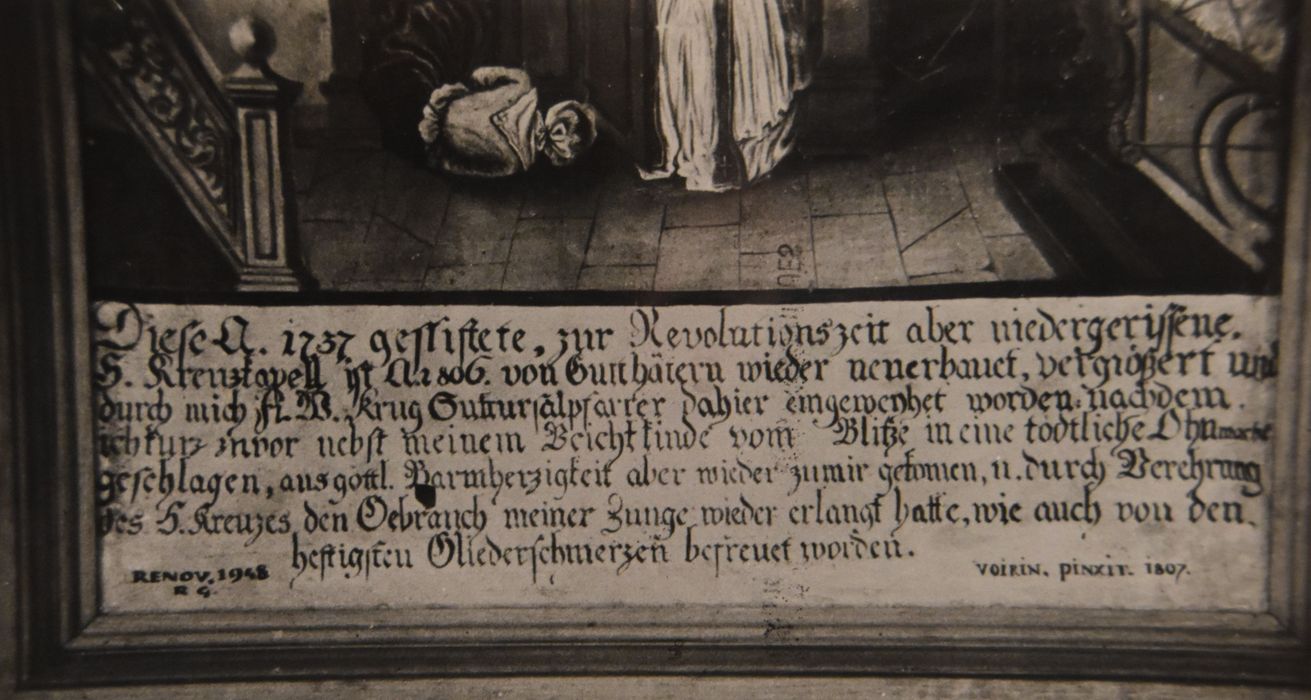 Diese A. 1737 gestiftete, zur Revolutionszeit aber niedergerissene.
H. Kreuzkapell ist A. 1806. von Gutthätern wieder neuerbauet, vergrößert und
durch mich Krug Sukkursalpfarrer dahier eingeweyhet worden: nachdem
ich kurz zuvor nebst meinem Beichtkinde vom Blitze in eine tödtliche Ohnmacht
geschlagen, aus göttl. Barmherzigkeit aber wieder zumir gekomen, u. durch Verehrung
des H. Kreuzes den Gebrauch meiner Zunge wieder erlangt hatte, wie auch von den
heftigsten Gliederschmerzen befreuet worden.
RENOV. 1948
R G.
VOIRIN. PINXIT. 1807.